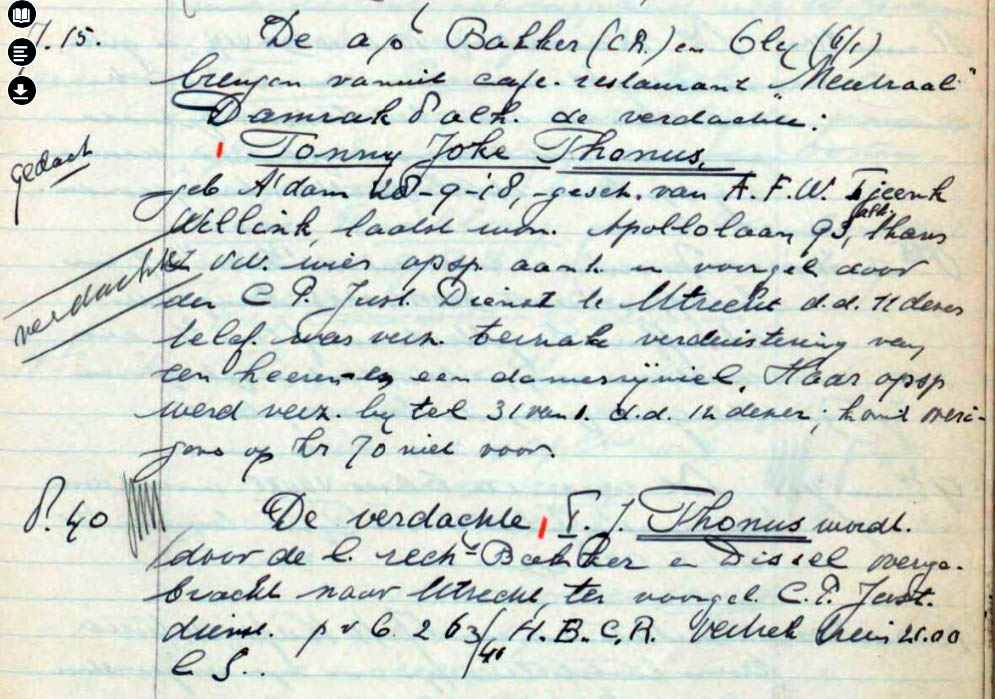 7.15. De apō Bakker (C.R.) en Gly (6/1)
brengen vanuit café-restaurant "Neutraal"
Damrak 8 alh. de verdachte:
gedach
Tonny Joke Thonus,
geb A'dam 28-9-'18, gesch. van A.F.W. Tjeenk
Willink, laatst won. Apollolaan 93, alh. thans
verdachte
z. v.w. wier opsp. aanh. en voorgel. door
den C.P. Just. Dienst te Utrecht d.d. 11 dezer
telef. was verz. terzake verduistering van
een heeren- en een damesrijwiel. Haar opsp
werd verz. bij tel 31 van 1. d.d. 12 dezer; komt overi-
gens op Kr 70 niet voor.
8.40 De verdachte T. J. Thonus wordt
door de b. rech= Bakker en Dissel overge-
bracht naar Utrecht, ter voorgel. C.P. Just.
dienst. p v b. 263/41 H.B.C.R. Vertrek trein 21.00
C. S..